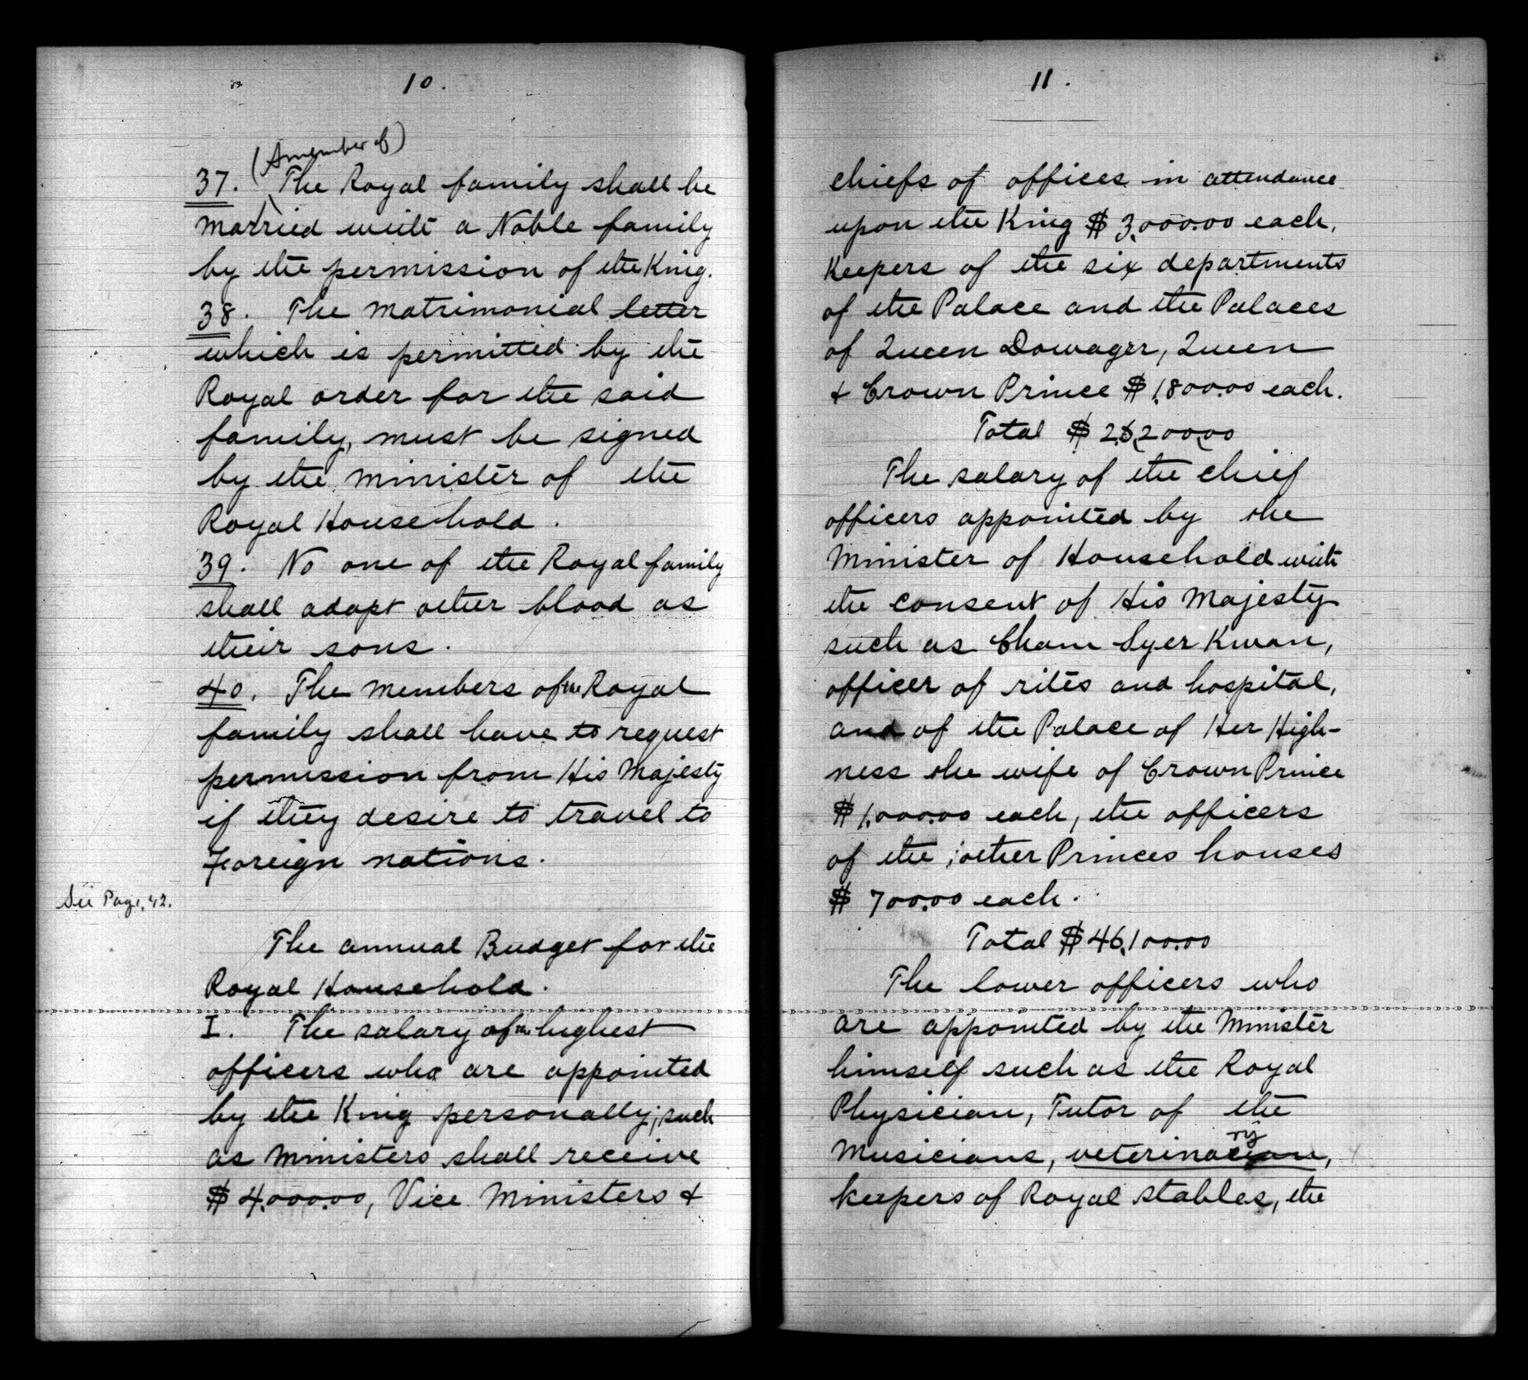 10.
(A member of)
37. The Royal family shall be
married with a Noble family
by the permission of the King.
38. The matrimonial letter
which is permitted by the
Royal order for the said
family, must be signed
by the minister of the
Royal Household.
39. No one of the Royal family
shall adopt other blood as
their sons.
40. The members of the Royal
family shall have to request
permission from His Majesty
if they desire to travel to
Foreign nations.
See Page, 42.
The annual Budget for the
Royal Household.
I. The salary of the highest
officers who are appointed
by the King personally; such
as Ministers shall receive
$ 4,000.00, Vice Ministers &
11.
chiefs of offices in attendance
upon the King $ 3,000.00 each,
Keepers of the six departments
of the Palace and the Palaces
of Queen Dowager, Queen
& Crown Prince $ 1,800.00 each.
Total $
The salary of the chief
officers appointed by the
Minister of Household with
the consent of His Majesty
such as Cham Syer Kwan,
officer of rites and hospital,
and of the Palace of Her High-
ness the wife of Crown Prince
$ 1,000.00 each, the officers
of the other Princes houses
$ 700.00 each.
Total $ 46,100.00
The lower officers who
are appointed by the Minister
himself such as the Royal
Physician, Tutor of the
Musicians, veterinary,
keepers of Royal stables, the